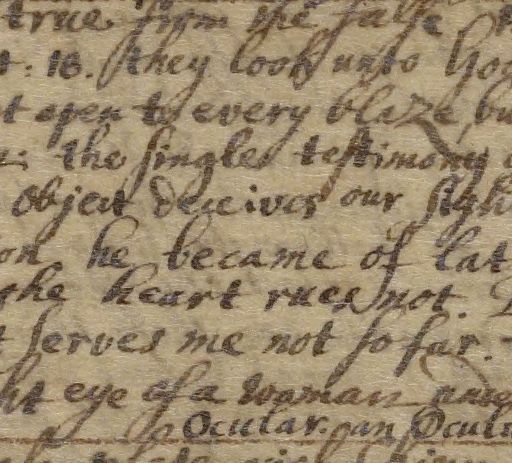 true from the false
18. they look unto
open to every blaze,
the single testimony
object deceives our
he became of
the heart rues not.
serves me not so far.
eye of a woman
Ocular. an